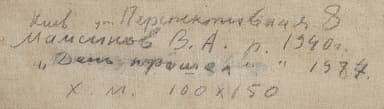 Киев ул. Перспективная 8
Мамсиков В. А. р. 1940г.
"День прошел" 1987.
х. м. 100х150